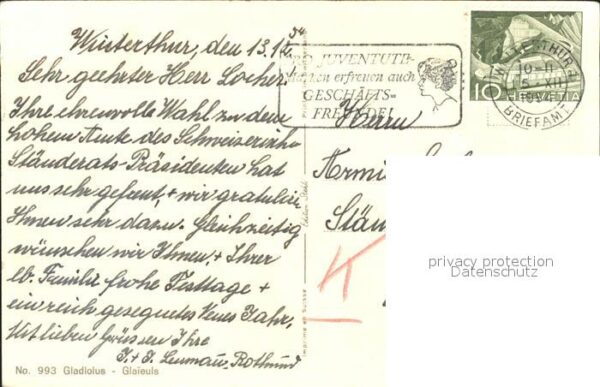 Winterthur, den 13.12. 54
Sehr geehrter Herr Locher.
Ihre ehrenvolle Wahl zu dem
hohen Amte des Schweizerischen
Ständerats-Präsidenten hat
uns sehr gefreut, + wir gratulieren
Ihnen sehr dazu. Gleichzeitig
wünschen wir Ihnen + Ihrer
lb. Familie frohe Festtage +
ein reich gesegnetes Neues Jahr,
Mit lieben Grüssen Ihre
J. + J. Rothmund
No. 993 Gladiolus - Glaïeuls
Imprimé en Suisse
PRO JUVENTUTE-
Marken erfreuen auch
GESCHÄFTS-
FREUNDE!
10 HELVETIA
WINTERTHUR 1
15. XII
1954
BRIEFAMT
Herrn
Armin
Stän
K
privacy protection
Datenschutz